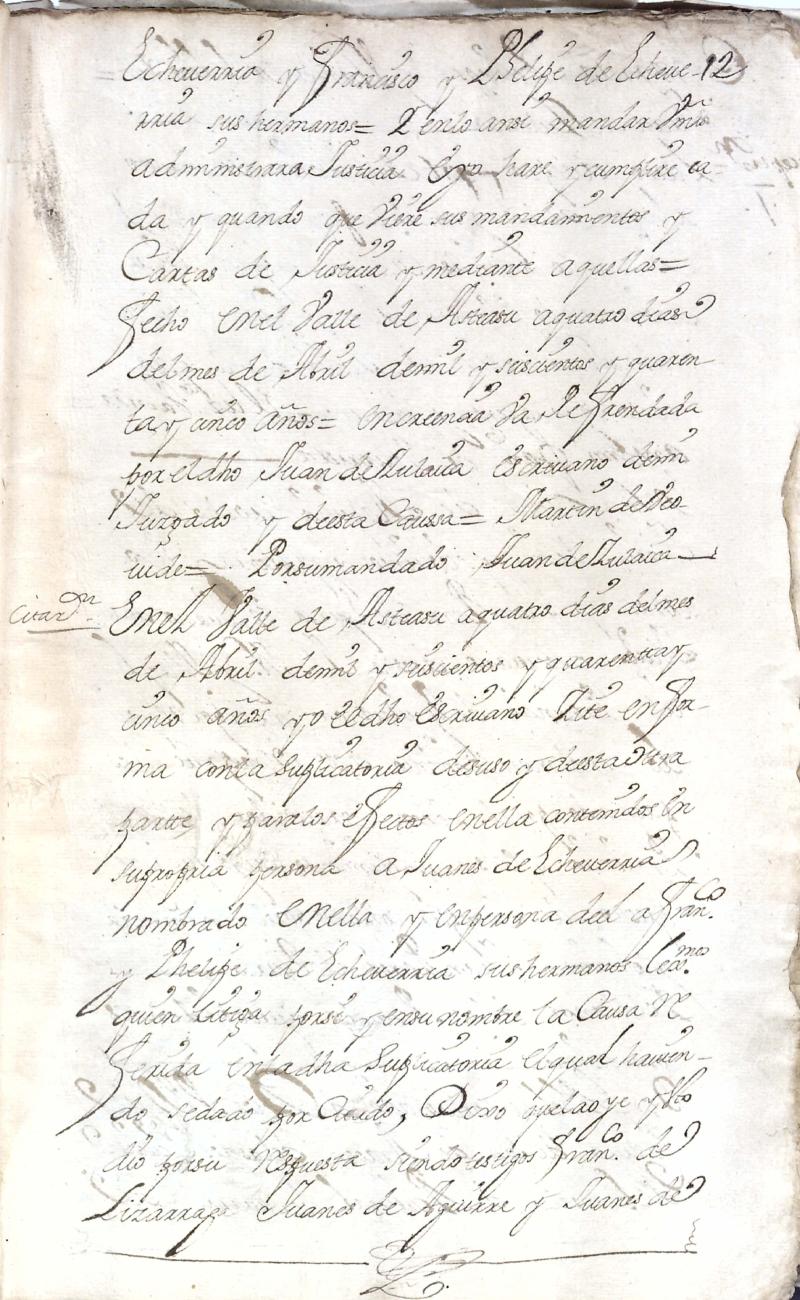 Echeverria y Francisco y Phelipe de Echeve- 12
rria sus hermanos= Y enlo ansi mandar Vmd
administrara Justicia Eyo hare y cumplire ca
da y quando que Viere sus mandamientos y
Cartas de Justicia y mediante aquellas=
fecho enel Valle de Asteasu aquatro dias
delmes de Abril demil y seiscientos y quaren
ta y cinco años= encreencia Va Refrendada
por eldho Juan de Zulaica escrivano demi
Juzgado y deesta Caussa= Martin de
Porsumandado Juan de Zulaica
Citaon
Enel Valle de Asteasu aquatro dias delmes
de Abril demil y seiscientos y quarenta y
cinco años yo eldho escrivano Zite enfor-
ma conla Suplicatoria desuso y deesta otra
partte y paralos efectos enella contenidos en
supropria persona a Juanes de Echeverria
nombrado enella y enpersona deel a Franco.
y Phelipe de Echeverria sus hermanos
quien litiga porsi y ensu nombre la Causa Re
ferida enladha Suplicatoria elqual havien-
do sedado por Citado, Dixo quelaoye y
dio porsu Respuesta siendo testigos Franco. de
Lizarraga Juanes de Aguirre y Juanes de